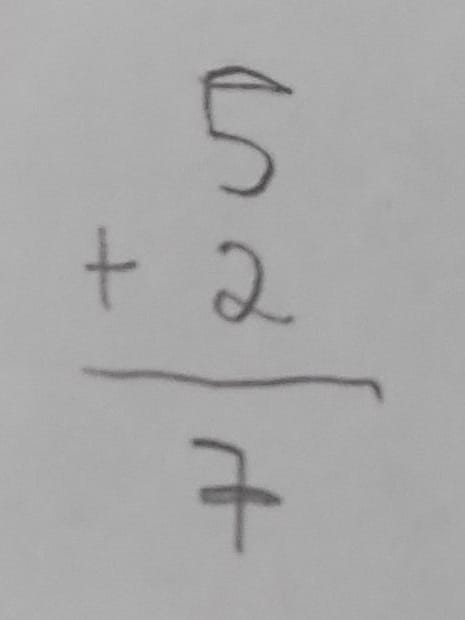 5
+ 2
7